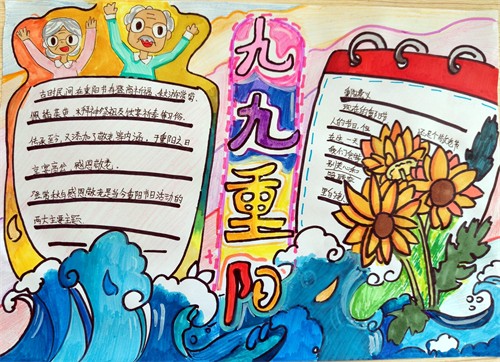 九九重阳
古时民间在重阳节有登高祈福、秋游赏菊、
佩插茱萸、拜神祭祖及饮宴祈寿等习俗。
传承至今，又添加了敬老等内涵，于重阳之日
享宴高会，感恩敬老。
登高赏秋与感恩敬老是当今重阳节日活动的
两大主要主题
人的节日，但
在这一天